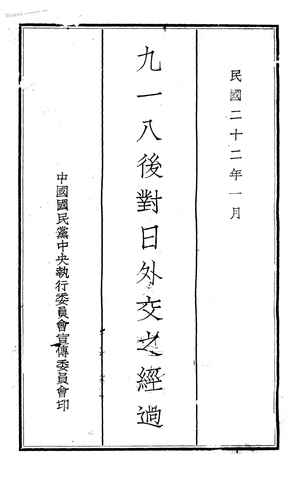 民國二十二年一月
九一八後對日外交之經過
中國國民黨中央執行委員會宣傳委員會印